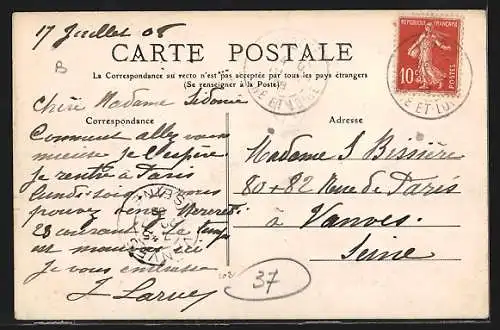 17 Juillet 08
B
CARTE POSTALE
La Correspondance au recto n'est pas acceptée par tous les pays étrangers
(Se renseigner à la Poste)
Correspondance
Chère Madame Sidonie
Comment allez vous
mieux je l'espère
je rentre à Paris
lundi soir vous
pouvez venir Mercredi
23 courant le temps
est mauvais ici
Je vous embrasse
J Larue
Adresse
Madame S Bessière
80 + 82 Rue de Paris
à Vanves
Seine
37
RÉPUBLIQUE FRANÇAISE
10c
POSTES
ET LOIRE
VANVES
SEINE